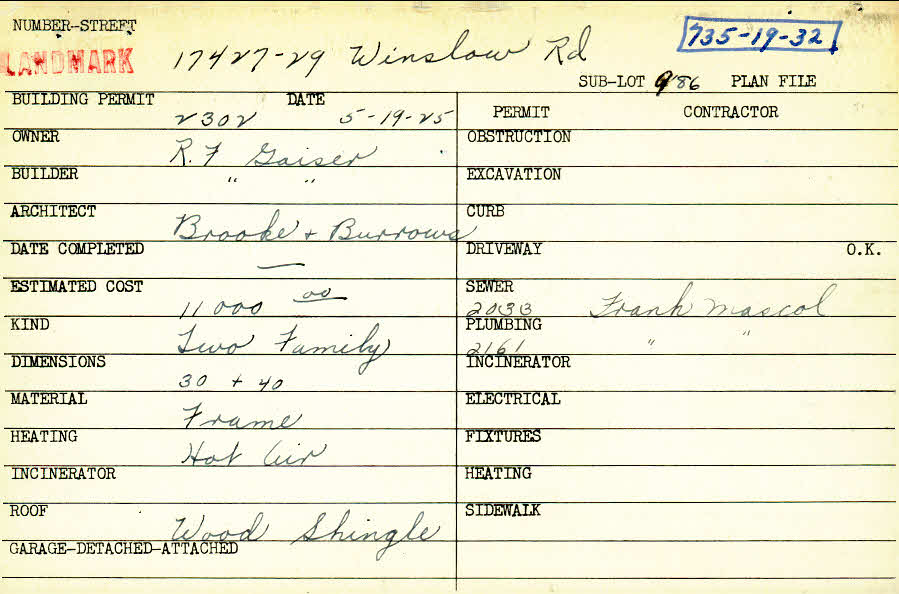 NUMBER-STREET
LANDMARK
17427-29 Winslow Rd
735-19-32
SUB-LOT 186 PLAN FILE
BUILDING PERMIT 2302 DATE 5-19-25
PERMIT CONTRACTOR
OWNER R.F Gaiser
OBSTRUCTION
BUILDER " "
EXCAVATION
ARCHITECT Brooke + Burrows
CURB
DATE COMPLETED —
DRIVEWAY O.K.
ESTIMATED COST 11000 00
SEWER 2033 Frank Mascol
KIND Two Family
PLUMBING 2161 " "
DIMENSIONS 30 + 40
INCINERATOR
MATERIAL Frame
ELECTRICAL
HEATING Hot Air
FIXTURES
INCINERATOR
HEATING
ROOF Wood Shingle
SIDEWALK
GARAGE-DETACHED-ATTACHED